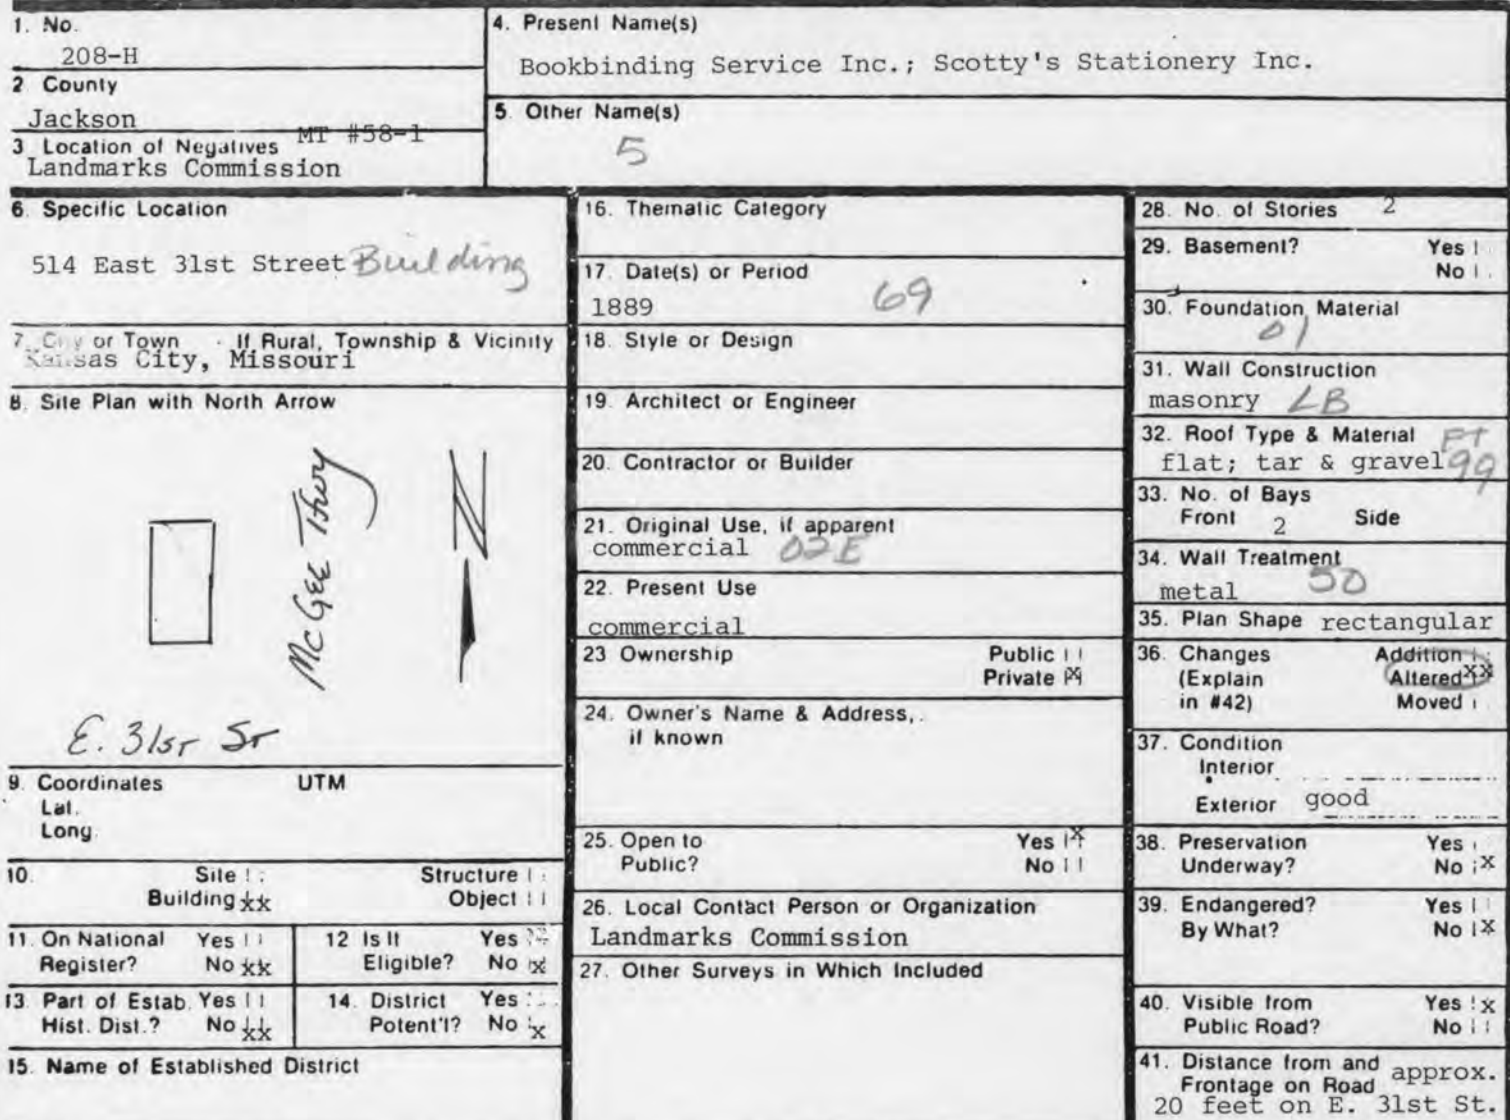 1. No.
208-H
2 County
Jackson
3 Location of Negatives MT #58-1
Landmarks Commission
4. Present Name(s)
Bookbinding Service Inc.; Scotty's Stationery Inc.
5 Other Name(s)
5
6. Specific Location
514 East 31st Street Building
7. City or Town If Rural, Township & Vicinity
Kansas City, Missouri
8. Site Plan with North Arrow
McGee Trwy
N
E. 31st St
9. Coordinates UTM
Lat.
Long.
10. Site Structure
Building xx Object
11. On National Yes
Register? No xx
12 Is It Yes
Eligible? No x
13. Part of Estab. Yes
Hist. Dist.? No xx
14. District Yes
Potent'l? No x
15. Name of Established District
16. Thematic Category
17. Date(s) or Period
1889 69
18. Style or Design
19. Architect or Engineer
20. Contractor or Builder
21. Original Use, if apparent
commercial 02E
22. Present Use
commercial
23 Ownership Public
Private x
24. Owner's Name & Address,
if known
25. Open to Yes x
Public? No
26. Local Contact Person or Organization
Landmarks Commission
27. Other Surveys in Which Included
28. No. of Stories 2
29. Basement? Yes
No
30. Foundation Material
01
31. Wall Construction
masonry LB
32. Roof Type & Material FT
flat; tar & gravel 99
33. No. of Bays
Front 2 Side
34. Wall Treatment
metal 50
35. Plan Shape rectangular
36. Changes Addition
(Explain Altered xx
in #42) Moved
37. Condition
Interior
Exterior good
38. Preservation Yes
Underway? No x
39. Endangered? Yes
By What? No x
40. Visible from Yes x
Public Road? No
41. Distance from and approx.
Frontage on Road
20 feet on E. 31st St.